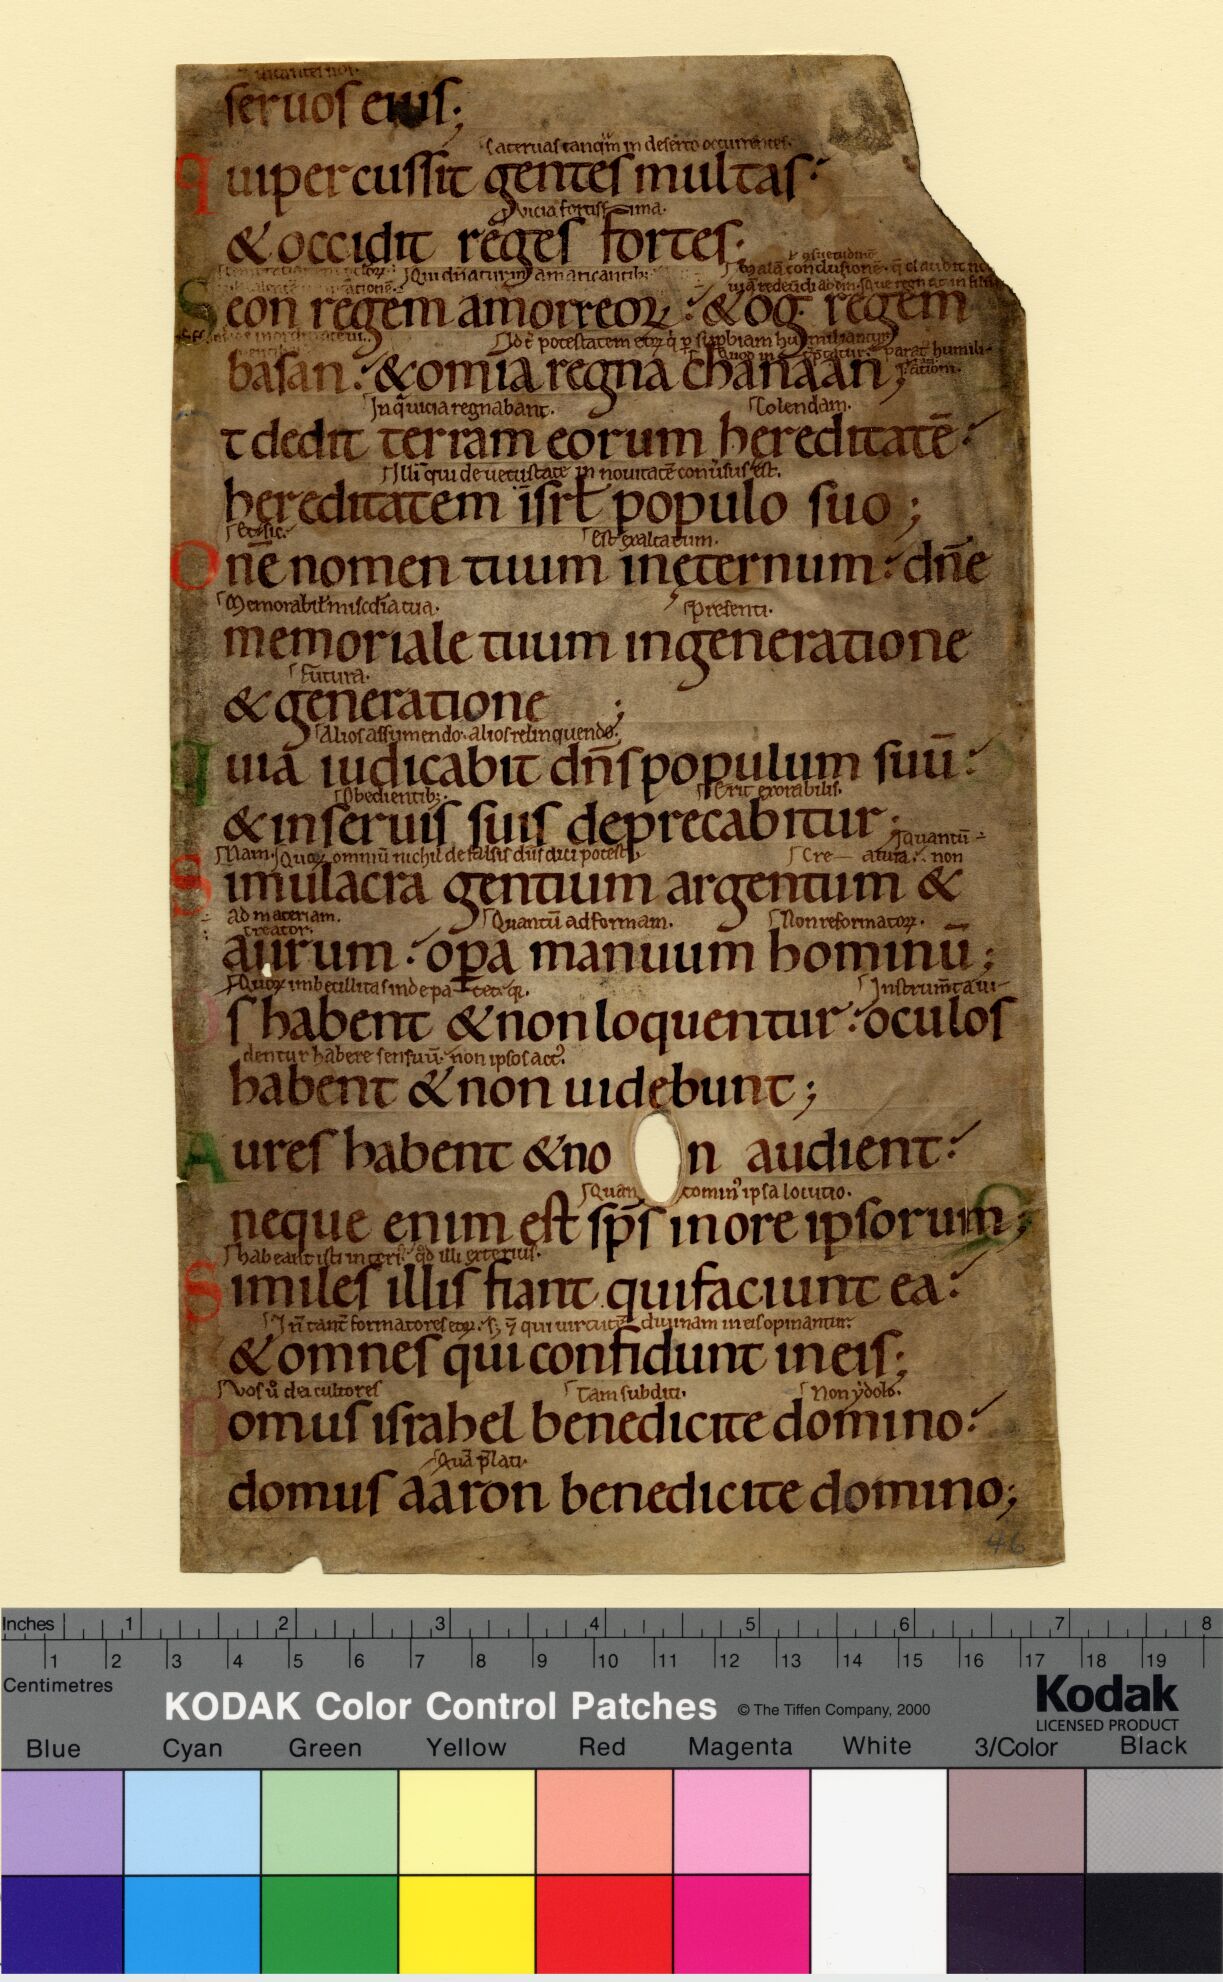 seruos eius;
Cateruas tanqm in deserto occurrentes.
Quipercussit gentes multas:
Vicia fortissima.
& occidit reges fortes;
Qui dnaturin amaricantib;
Seon regem amorreoꝝ: & og regem
basan: & om̄ia regna chanaan;
In q̄ uicia regnabant. Colendam.
t dedit terram eorum hereditatē:
Illi qui de uetustate in nouitatē conuersus est.
hereditatem isrl̄ populo suo;
et sic. est exaltatum.
Dnē nomen tuum inęternum: dn̄e
Memorabil' misc̄dia tua. Presenti.
memoriale tuum ingeneratione
Futura.
& generatione;
Alios assumendo. alios relinquendo.
quia iudicabit dn̄s populum suū:
Obedientib; Erit exorabilis.
& inseruis suis deprecabitur;
quantū
Nam. Quoꝝ omniū nichil de falsis diis dici potest. Creatura. non
Simulacra gentium argentum &
ad materiam. Quantū ad formam. Non reformatoꝝ.
creator.
aurum: opa manuum hominū;
Quoꝝ imbecillitas inde patet. Instrum̄ta ui-
Os habent & non loquentur: oculos
dentur habere sensuū. non ipsos act'.
habent & non uidebunt;
Aures habent & non audient:
Quanto min' ipsa locutio.
neque enim est sp̄s inore ipsorum;
habeant isti interi' qd illi exterius.
Similes illis fiant quifaciunt ea:
& omnes qui confidunt ineis;
Vos ů dei cultores Tam subditi. Non ydolo.
Domus israhel benedicite domino:
Quā p̄lati.
domus aaron benedicite domino;
46
Inches 1 2 3 4 5 6 7 8
1 2 3 4 5 6 7 8 9 10 11 12 13 14 15 16 17 18 19
Centimetres
KODAK Color Control Patches © The Tiffen Company, 2000 Kodak
LICENSED PRODUCT
Blue Cyan Green Yellow Red Magenta White 3/Color Black